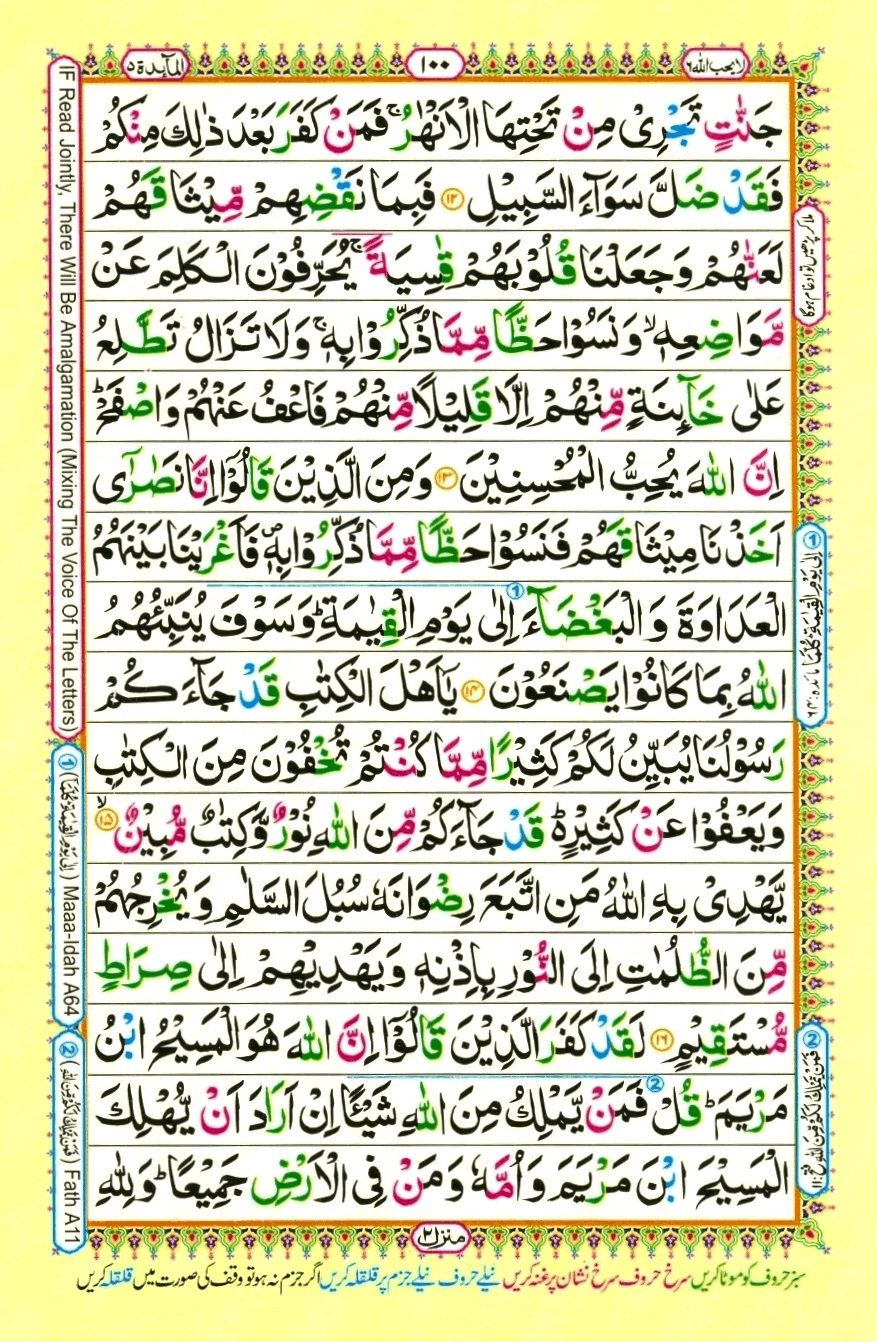 المآئدة ۵
۱۰۰
لا یحب اللہ ٦
جَنّٰتٍ تَجْرِیْ مِنْ تَحْتِهَا الْاَنْهٰرُ ۚ فَمَنْ كَفَرَ بَعْدَ ذٰلِكَ مِنْكُمْ
فَقَدْ ضَلَّ سَوَآءَ السَّبِیْلِ ﴿۱۲﴾ فَبِمَا نَقْضِهِمْ مِّیْثَاقَهُمْ
لَعَنّٰهُمْ وَجَعَلْنَا قُلُوْبَهُمْ قٰسِیَةً ۚ یُحَرِّفُوْنَ الْكَلِمَ عَنْ
مَّوَاضِعِهٖ ۙ وَنَسُوْا حَظًّا مِّمَّا ذُكِّرُوْا بِهٖ ۚ وَلَا تَزَالُ تَطَّلِعُ
عَلٰی خَآىِٕنَةٍ مِّنْهُمْ اِلَّا قَلِیْلًا مِّنْهُمْ فَاعْفُ عَنْهُمْ وَاصْفَحْ ؕ
اِنَّ اللهَ یُحِبُّ الْمُحْسِنِیْنَ ﴿۱۳﴾ وَمِنَ الَّذِیْنَ قَالُوْۤا اِنَّا نَصٰرٰۤی
اَخَذْنَا مِیْثَاقَهُمْ فَنَسُوْا حَظًّا مِّمَّا ذُكِّرُوْا بِهٖ ۪ فَاَغْرَیْنَا بَیْنَهُمُ
الْعَدَاوَةَ وَالْبَغْضَآءَ اِلٰی یَوْمِ الْقِیٰمَةِ ؕ وَسَوْفَ یُنَبِّئُهُمُ
اللهُ بِمَا كَانُوْا یَصْنَعُوْنَ ﴿۱۴﴾ یٰۤاَهْلَ الْكِتٰبِ قَدْ جَآءَكُمْ
رَسُوْلُنَا یُبَیِّنُ لَكُمْ كَثِیْرًا مِّمَّا كُنْتُمْ تُخْفُوْنَ مِنَ الْكِتٰبِ
وَیَعْفُوْا عَنْ كَثِیْرٍ ؕ۬ قَدْ جَآءَكُمْ مِّنَ اللهِ نُوْرٌ وَّكِتٰبٌ مُّبِیْنٌ ﴿۱۵﴾ ۙ
یَّهْدِیْ بِهِ اللهُ مَنِ اتَّبَعَ رِضْوَانَهٗ سُبُلَ السَّلٰمِ وَیُخْرِجُهُمْ
مِّنَ الظُّلُمٰتِ اِلَی النُّوْرِ بِاِذْنِهٖ وَیَهْدِیْهِمْ اِلٰی صِرَاطٍ
مُّسْتَقِیْمٍ ﴿۱۶﴾ لَقَدْ كَفَرَ الَّذِیْنَ قَالُوْۤا اِنَّ اللهَ هُوَ الْمَسِیْحُ ابْنُ
مَرْیَمَ ؕ قُلْ فَمَنْ یَّمْلِكُ مِنَ اللهِ شَیْـًٔا اِنْ اَرَادَ اَنْ یُّهْلِكَ
الْمَسِیْحَ ابْنَ مَرْیَمَ وَاُمَّهٗ وَمَنْ فِی الْاَرْضِ جَمِیْعًا ؕ وَلِلّٰهِ
منزل ۲
سبز حروف کو موٹا کریں سرخ حروف سرخ نشان پر غنہ کریں نیلے حروف نیلے جزم پر قلقلہ کریں اگر جزم نہ ہو تو وقف کی صورت میں قلقلہ کریں
IF Read Jointly, There Will Be Amalgamation (Mixing The Voice Of The Letters)
① (اِلٰی یَوْمِ الْقِیٰمَةِ كُلَّمَاۤ) Maaa-Idah A64
② (فَمَنْ یَّمْلِكُ لَكُمْ مِّنَ اللهِ) Fath A11
ملا کر پڑھیں تو ادغام ہوگا
① اِلٰی یَوْمِ الْقِیٰمَةِ كُلَّمَا مائدہ: ٦۴
② فَمَنْ یَّمْلِكُ لَكُمْ مِّنَ اللهِ فتح: ۱۱